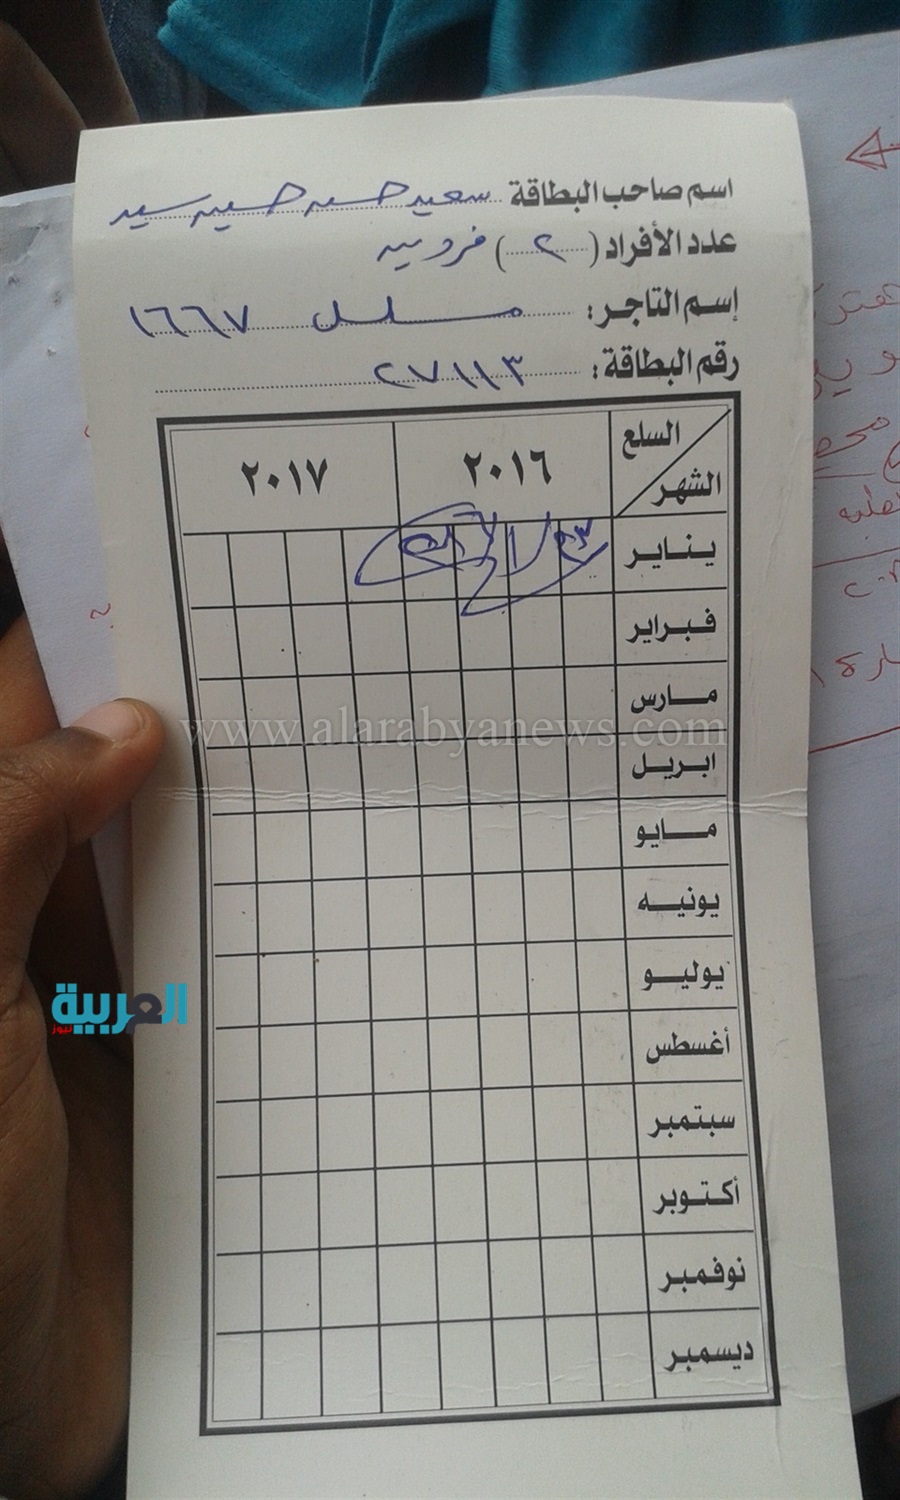 اسم صاحب البطاقة سعيد حسن حسين سيد
عدد الأفراد ( ٢ ) فردين
إسم التاجر : مسلسل ١٦٦٧
رقم البطاقة : ٢٧١١٣
السلع
الشهر
٢٠١٦
٢٠١٧
يناير
فبراير
مارس
www.alarabyanews.com
ابريل
مايو
يونيه
يوليو
العربية
نيوز
أغسطس
سبتمبر
أكتوبر
نوفمبر
ديسمبر